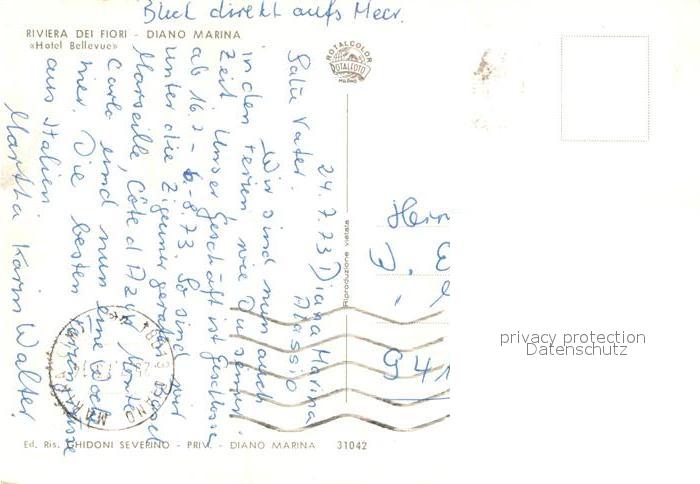 Blick direkt aufs Meer.
RIVIERA DEI FIORI - DIANO MARINA
«Hotel Bellevue»
ROTALCOLOR
ROTALFOTO
MILANO
24.7.73 Diana Marina
Alassio
Salü Vater.
Wir sind nun auch
in den Ferien wie Du
Zeit Unser Geschäft ist geschlossen
ab 16.7 - 6.8.73 So sind wir
unter die Zigeuner geraten. Basel
Marseille Côte d'Azur Monte
Carlo und nun eine Woche
hier. Die besten Feriengrüsse
aus Italien.
Martha Karin Walter
Riproduzione vietata
Herrn
G 41
privacy protection
Datenschutz
DIANO MARINA
Ed. Ris. GHIDONI SEVERINO - PRIV. - DIANO MARINA 31042